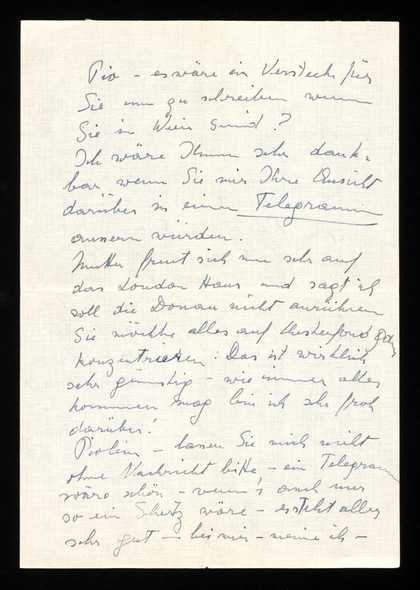 Pio – es wäre ein Versteck für
Sie um zu schreiben wenn
Sie in Wien sind?
Ich wäre Ihnen sehr dank-
bar, wenn Sie mir Ihre Ansicht
darüber in einem Telegramm
äussern würden.
Mutter freut sich nun sehr auf
das London Haus und sagt ich
soll die Donau nicht anrühren
Sie möchte alles auf
konzentrieren: Das ist wirklich
sehr günstig – wie immer alles
kommen mag bin ich sehr froh
darüber!
– lassen Sie mich nicht
ohne Nachricht bitte – ein Telegramm
wäre schön – wenn's auch nur
so ein Scherz wäre – es steht alles
sehr gut – bei mir – meine ich –